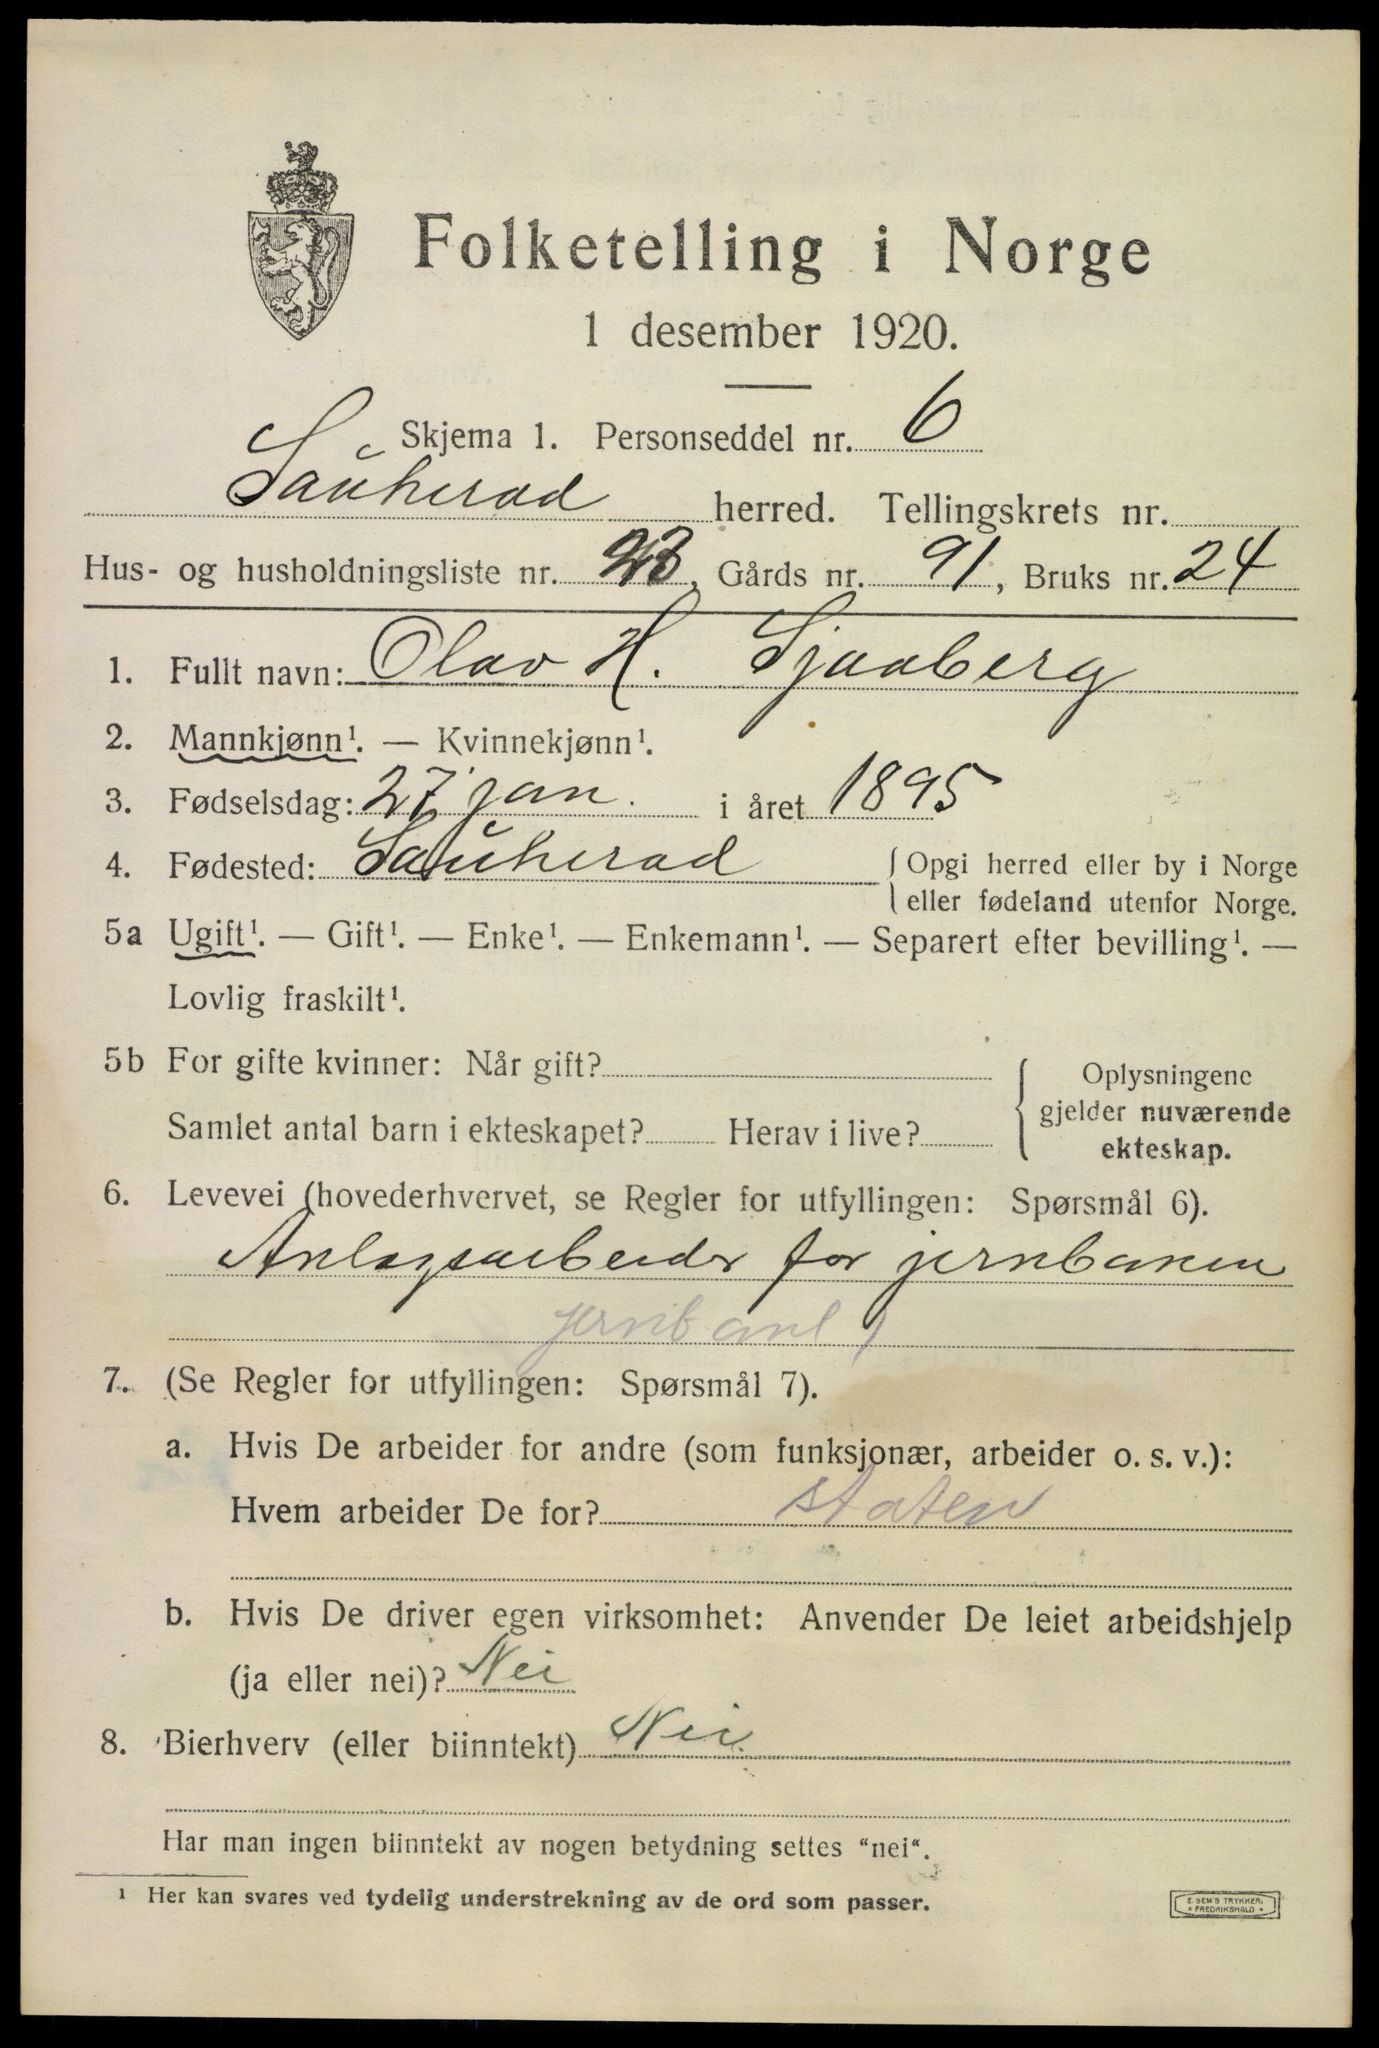 Folketelling i Norge
1 desember 1920.
Skjema 1. Personseddel nr. 6
Sauherad herred. Tellingskrets nr.
Hus- og husholdningsliste nr. 23, Gårds nr. 91, Bruks nr. 24
1. Fullt navn: Olav H. Sjaaberg
2. Mannkjønn¹. — Kvinnekjønn¹.
3. Fødselsdag: 27 jan. i året 1895
4. Fødested: Sauherad { Opgi herred eller by i Norge
eller fødeland utenfor Norge.
5a Ugift¹. — Gift¹. — Enke¹. — Enkemann¹. — Separert efter bevilling¹. —
Lovlig fraskilt¹.
5b For gifte kvinner: Når gift?
Samlet antal barn i ekteskapet? Herav i live?
Oplysningene
gjelder nuværende
ekteskap.
6. Levevei (hovederhvervet, se Regler for utfyllingen: Spørsmål 6).
Anlegsarbeider for jernbanen
jernbanl
7. (Se Regler for utfyllingen: Spørsmål 7).
a. Hvis De arbeider for andre (som funksjonær, arbeider o. s. v.):
Hvem arbeider De for? staten
b. Hvis De driver egen virksomhet: Anvender De leiet arbeidshjelp
(ja eller nei)? Nei
8. Bierhverv (eller biinntekt) Nei.
Har man ingen biinntekt av nogen betydning settes “nei“.
¹ Her kan svares ved tydelig understrekning av de ord som passer.
E. SEM'S TRYKKERI
• FREDRIKSHALD •